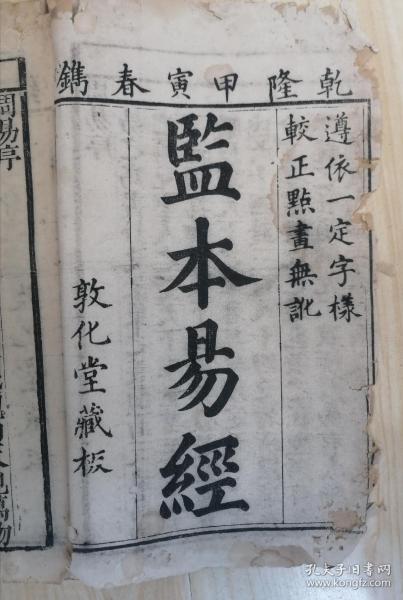 乾隆甲寅春鐫
遵依一定字樣
較正點畫無訛
監本易經
敦化堂藏板
周易序
孔夫子旧书网
www.kongfz.com